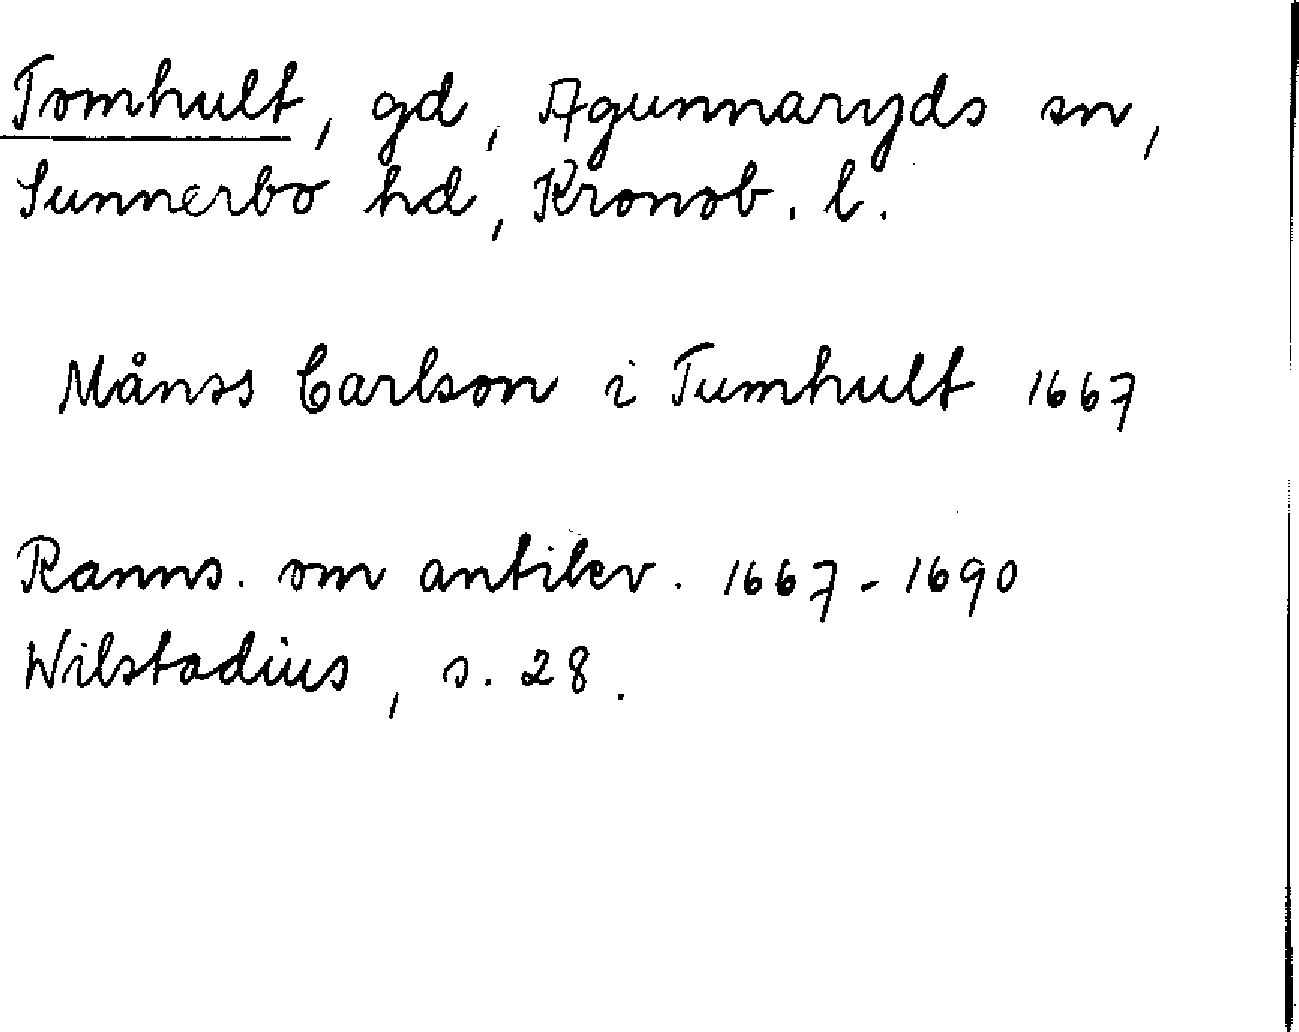 Tomhult, gd, Agunnaryds sn,
Sunnerbo hd, Kronob. l.
Månss Carlson i Tumhult 1667
Ranns. om antikv. 1667-1690
Wilstadius, s. 28.